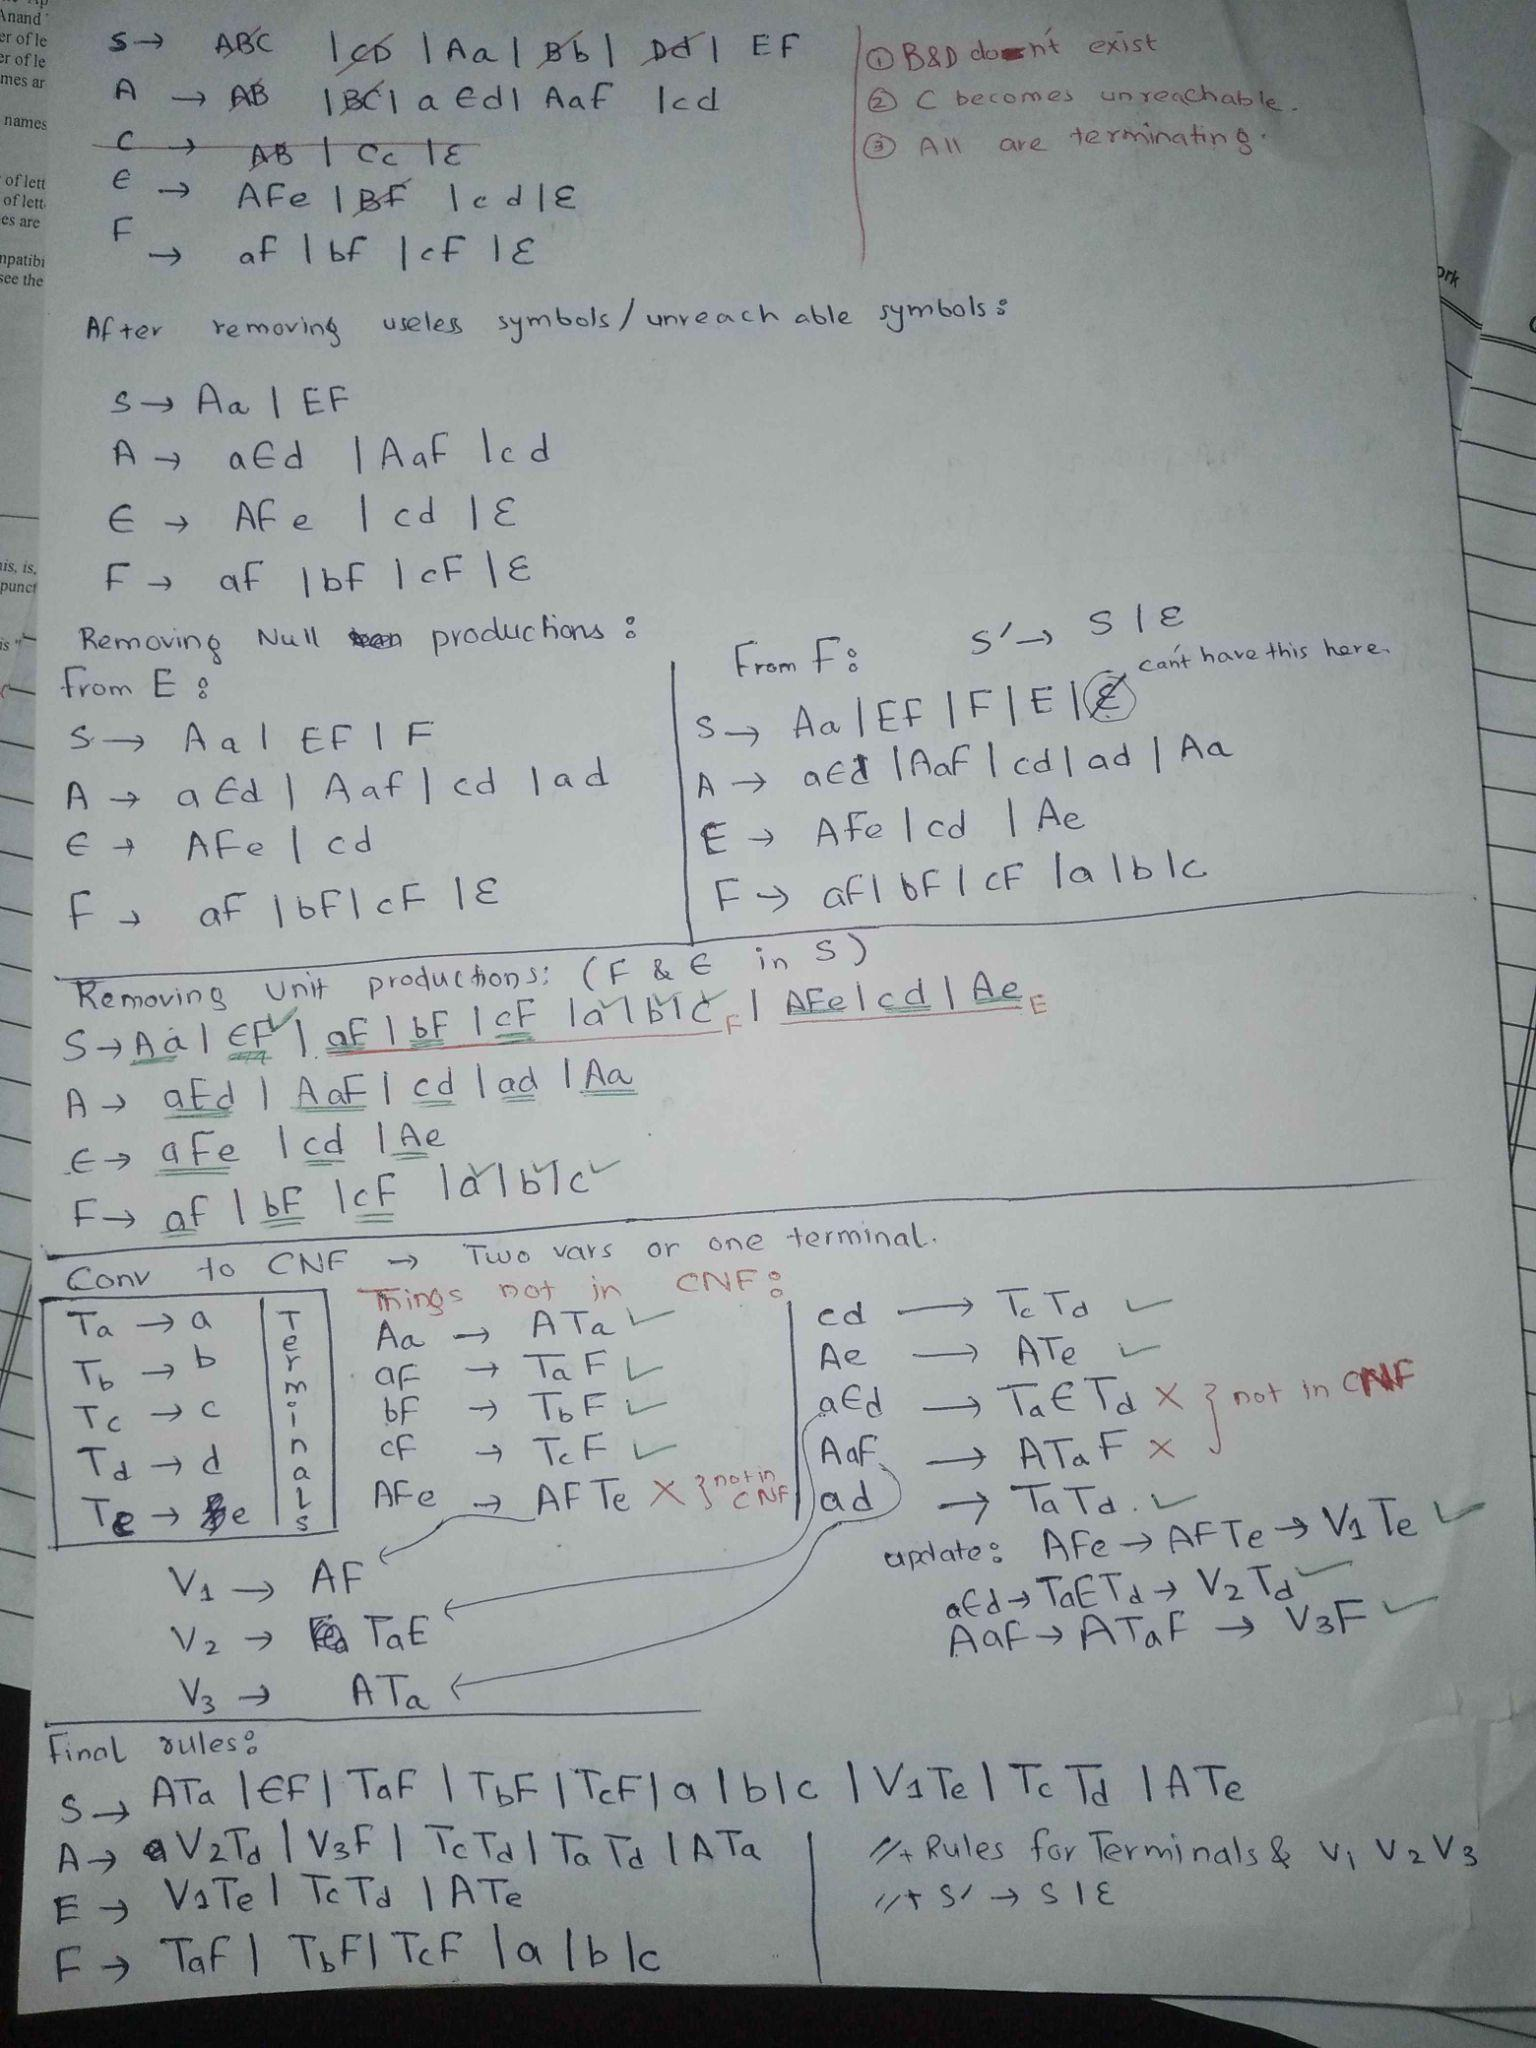 Anand
er of le
er of le
mes ar
names
of lett
of lett
es are
mpatibi
see the
his, is,
punct
is "
ork
S → ABC | CD | Aa | Bb | Dd | EF
A → AB | BC | a Ed | AaF | cd
C → AB | Cc | ε
E → AFe | BF | cd | ε
F → aF | bF | cF | ε
① B&D doesn't exist
② C becomes unreachable.
③ All are terminating.
After removing useless symbols/unreachable symbols:
S → Aa | EF
A → aEd | AaF | cd
E → AFe | cd | ε
F → aF | bF | cF | ε
Removing Null productions:
From E:
S → Aa | EF | F
A → aEd | AaF | cd | ad
E → AFe | cd
F → aF | bF | cF | ε
From F: S' → S | ε
can't have this here.
S → Aa | EF | F | E | ε
A → aEd | AaF | cd | ad | Aa
E → AFe | cd | Ae
F → aF | bF | cF | a | b | c
Removing Unit productions: (F & E in S)
S → Aa | EF | aF | bF | cF | a | b | c F | AFe | cd | Ae E
A → aEd | AaF | cd | ad | Aa
E → aFe | cd | Ae
F → aF | bF | cF | a | b | c
Conv to CNF → Two vars or one terminal.
Ta → a
Tb → b
Tc → c
Td → d
Te → e
Terminals
Things not in CNF:
Aa → ATa ✓
aF → TaF ✓
bF → TbF ✓
cF → TcF ✓
AFe → AFTe × } not in CNF
cd → TcTd ✓
Ae → ATe ✓
aEd → TaETd × } not in CNF
AaF → ATaF ×
ad → TaTd. ✓
update: AFe → AFTe → V1Te ✓
aEd → TaETd → V2Td ✓
AaF → ATaF → V3F ✓
V1 → AF
V2 → TaE
V3 → ATa
Final rules:
S → ATa | EF | TaF | TbF | TcF | a | b | c | V1Te | TcTd | ATe
A → V2Td | V3F | TcTd | TaTd | ATa
E → V1Te | TcTd | ATe
F → TaF | TbF | TcF | a | b | c
//+ Rules for Terminals & V1 V2 V3
//+ S' → S | ε